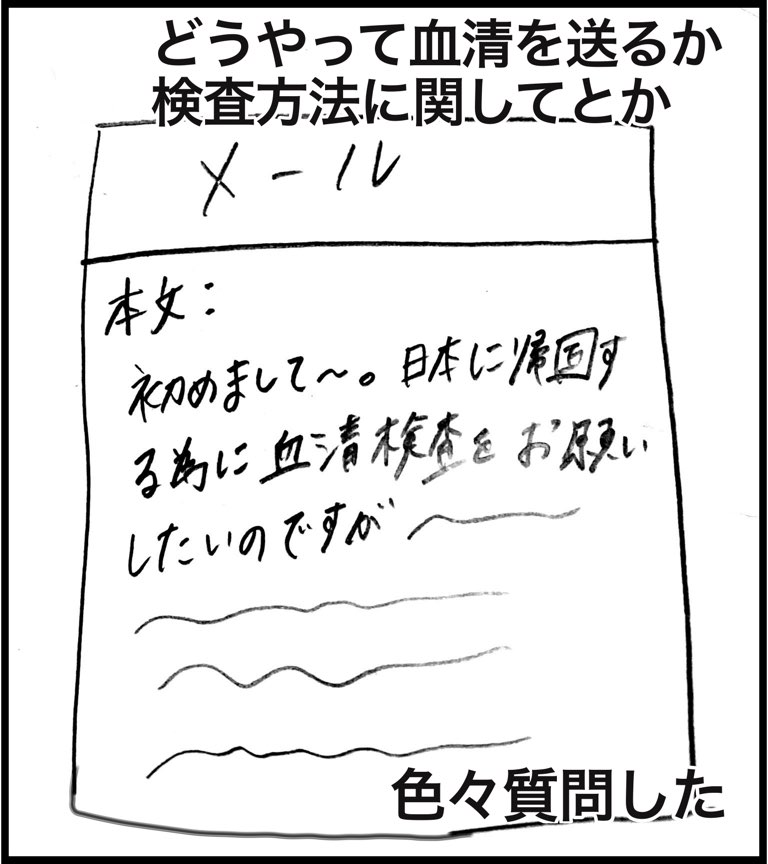 どうやって血清を送るか
検査方法に関してとか
メール
本文：
初めまして〜。日本に帰国す
る為に血清検査をお願い
したいのですが
色々質問した